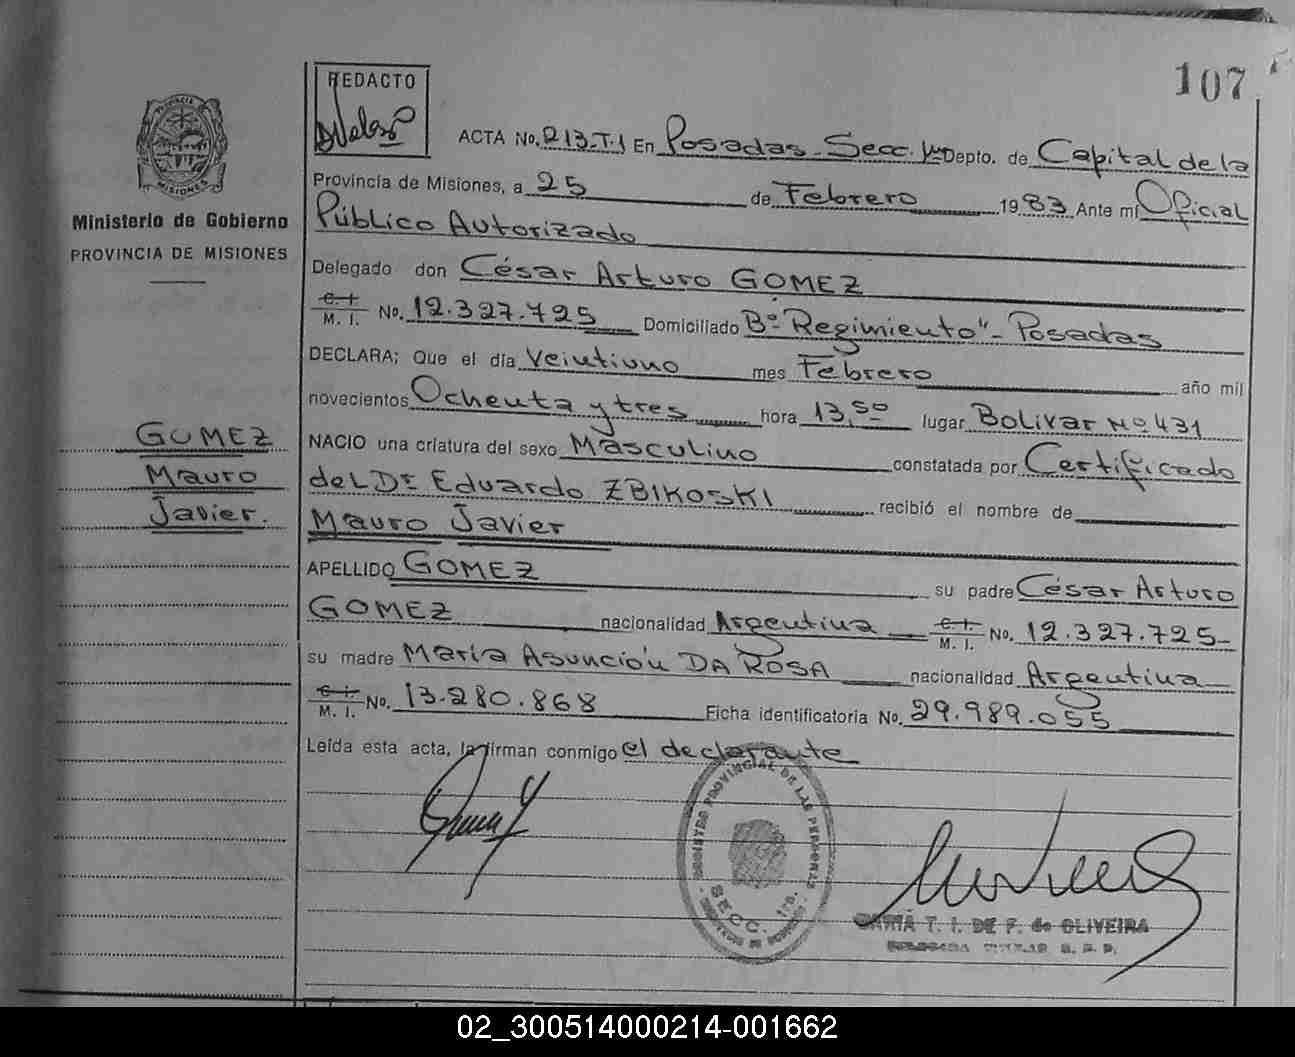 107
REDACTO
PROVINCIA
MISIONES
Ministerio de Gobierno
PROVINCIA DE MISIONES
ACTA No. 213-T.1 En Posadas - Secc. 1ra Depto. de Capital de la
Provincia de Misiones, a 25 de Febrero 1983 Ante mí Oficial
Público Autorizado
Delegado don César Arturo GOMEZ
C. I. M. I. No. 12.327.725 Domiciliado Bº "Regimiento" - Posadas
DECLARA; Que el día Veintiuno mes Febrero año mil
novecientos Ochenta y tres hora 13,50 lugar Bolivar Nº 431
NACIO una criatura del sexo Masculino constatada por Certificado
del Dr Eduardo ZBIKOSKI recibió el nombre de
Mauro Javier
APELLIDO GOMEZ su padre César Arturo
GOMEZ nacionalidad Argentina C. I. M. I. No. 12.327.725-
su madre María Asunción DA ROSA nacionalidad Argentina
C. I. M. I. No. 13.280.868 Ficha identificatoria No. 29.989.055
Leída esta acta, la firman conmigo el declarante
GOMEZ
Mauro
Javier.
REGISTRO PROVINCIAL DE LAS PERSONAS
SECC. 1ra.
MARIA T. I. DE F. de OLIVEIRA
02_300514000214-001662